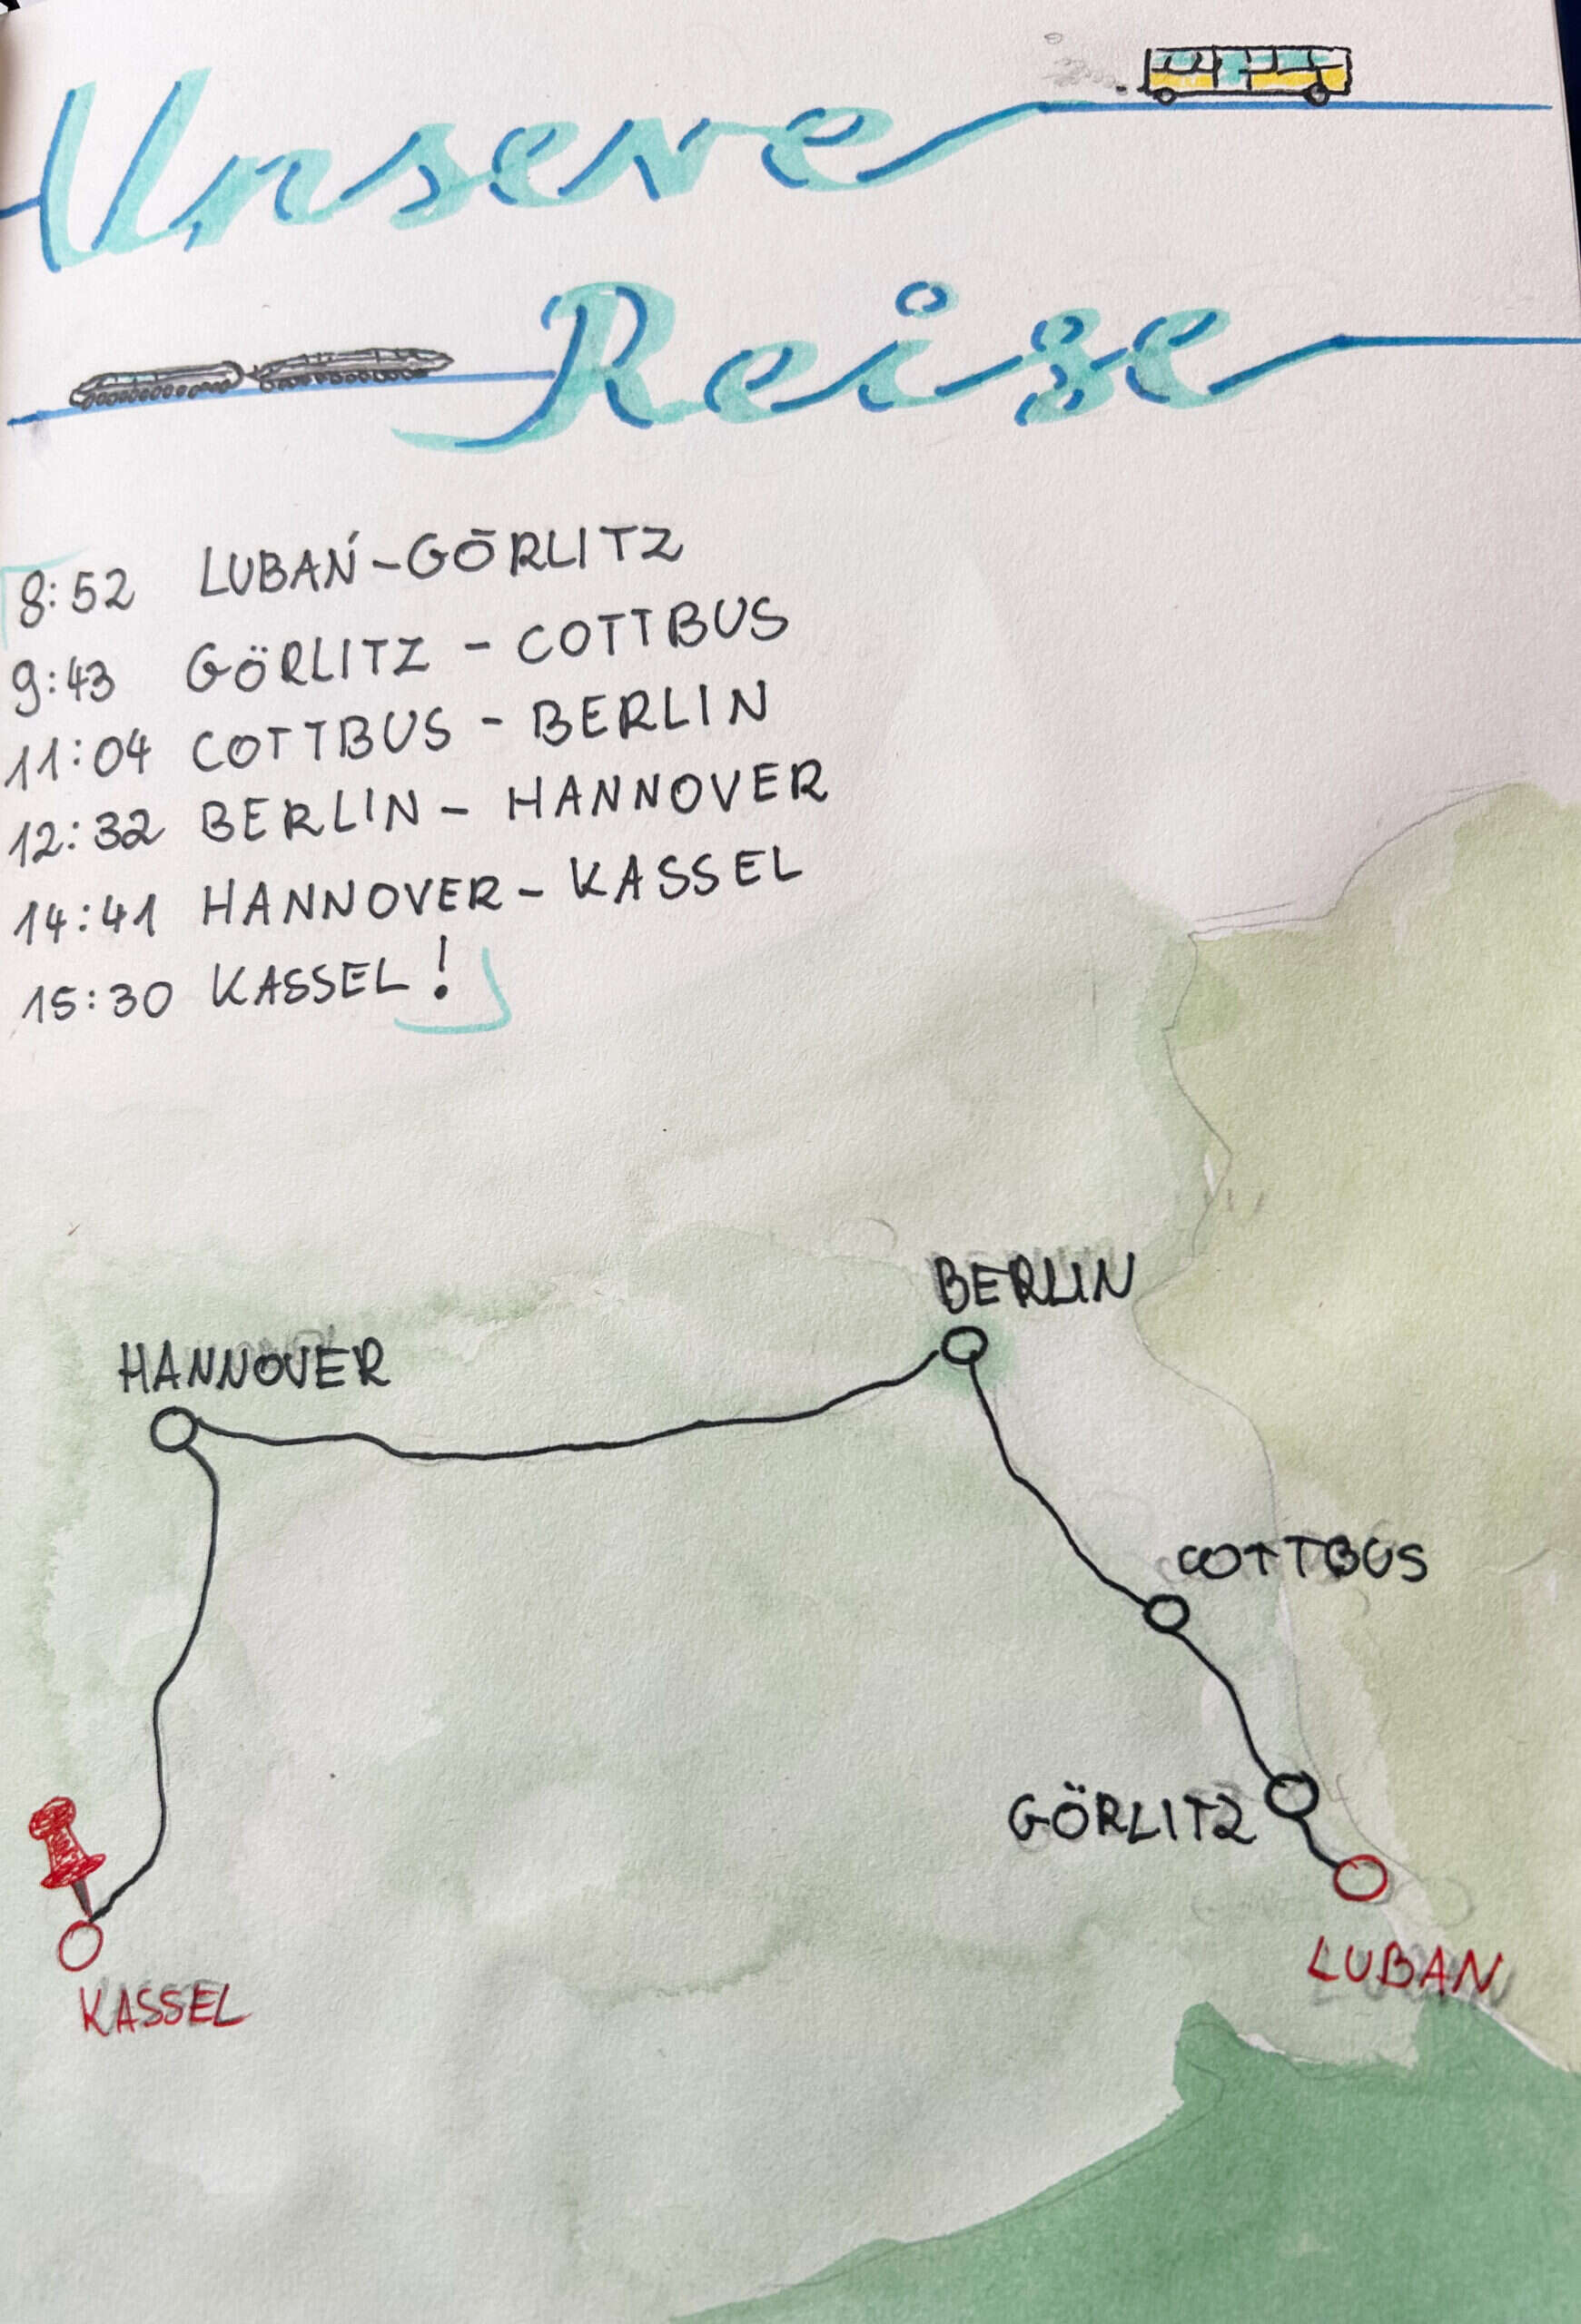 Unsere
Reise
8:52 LUBAŃ-GÖRLITZ
9:43 GÖRLITZ - COTTBUS
11:04 COTTBUS - BERLIN
12:32 BERLIN - HANNOVER
14:41 HANNOVER - KASSEL
15:30 KASSEL!
BERLIN
HANNOVER
COTTBUS
GÖRLITZ
LUBAN
KASSEL